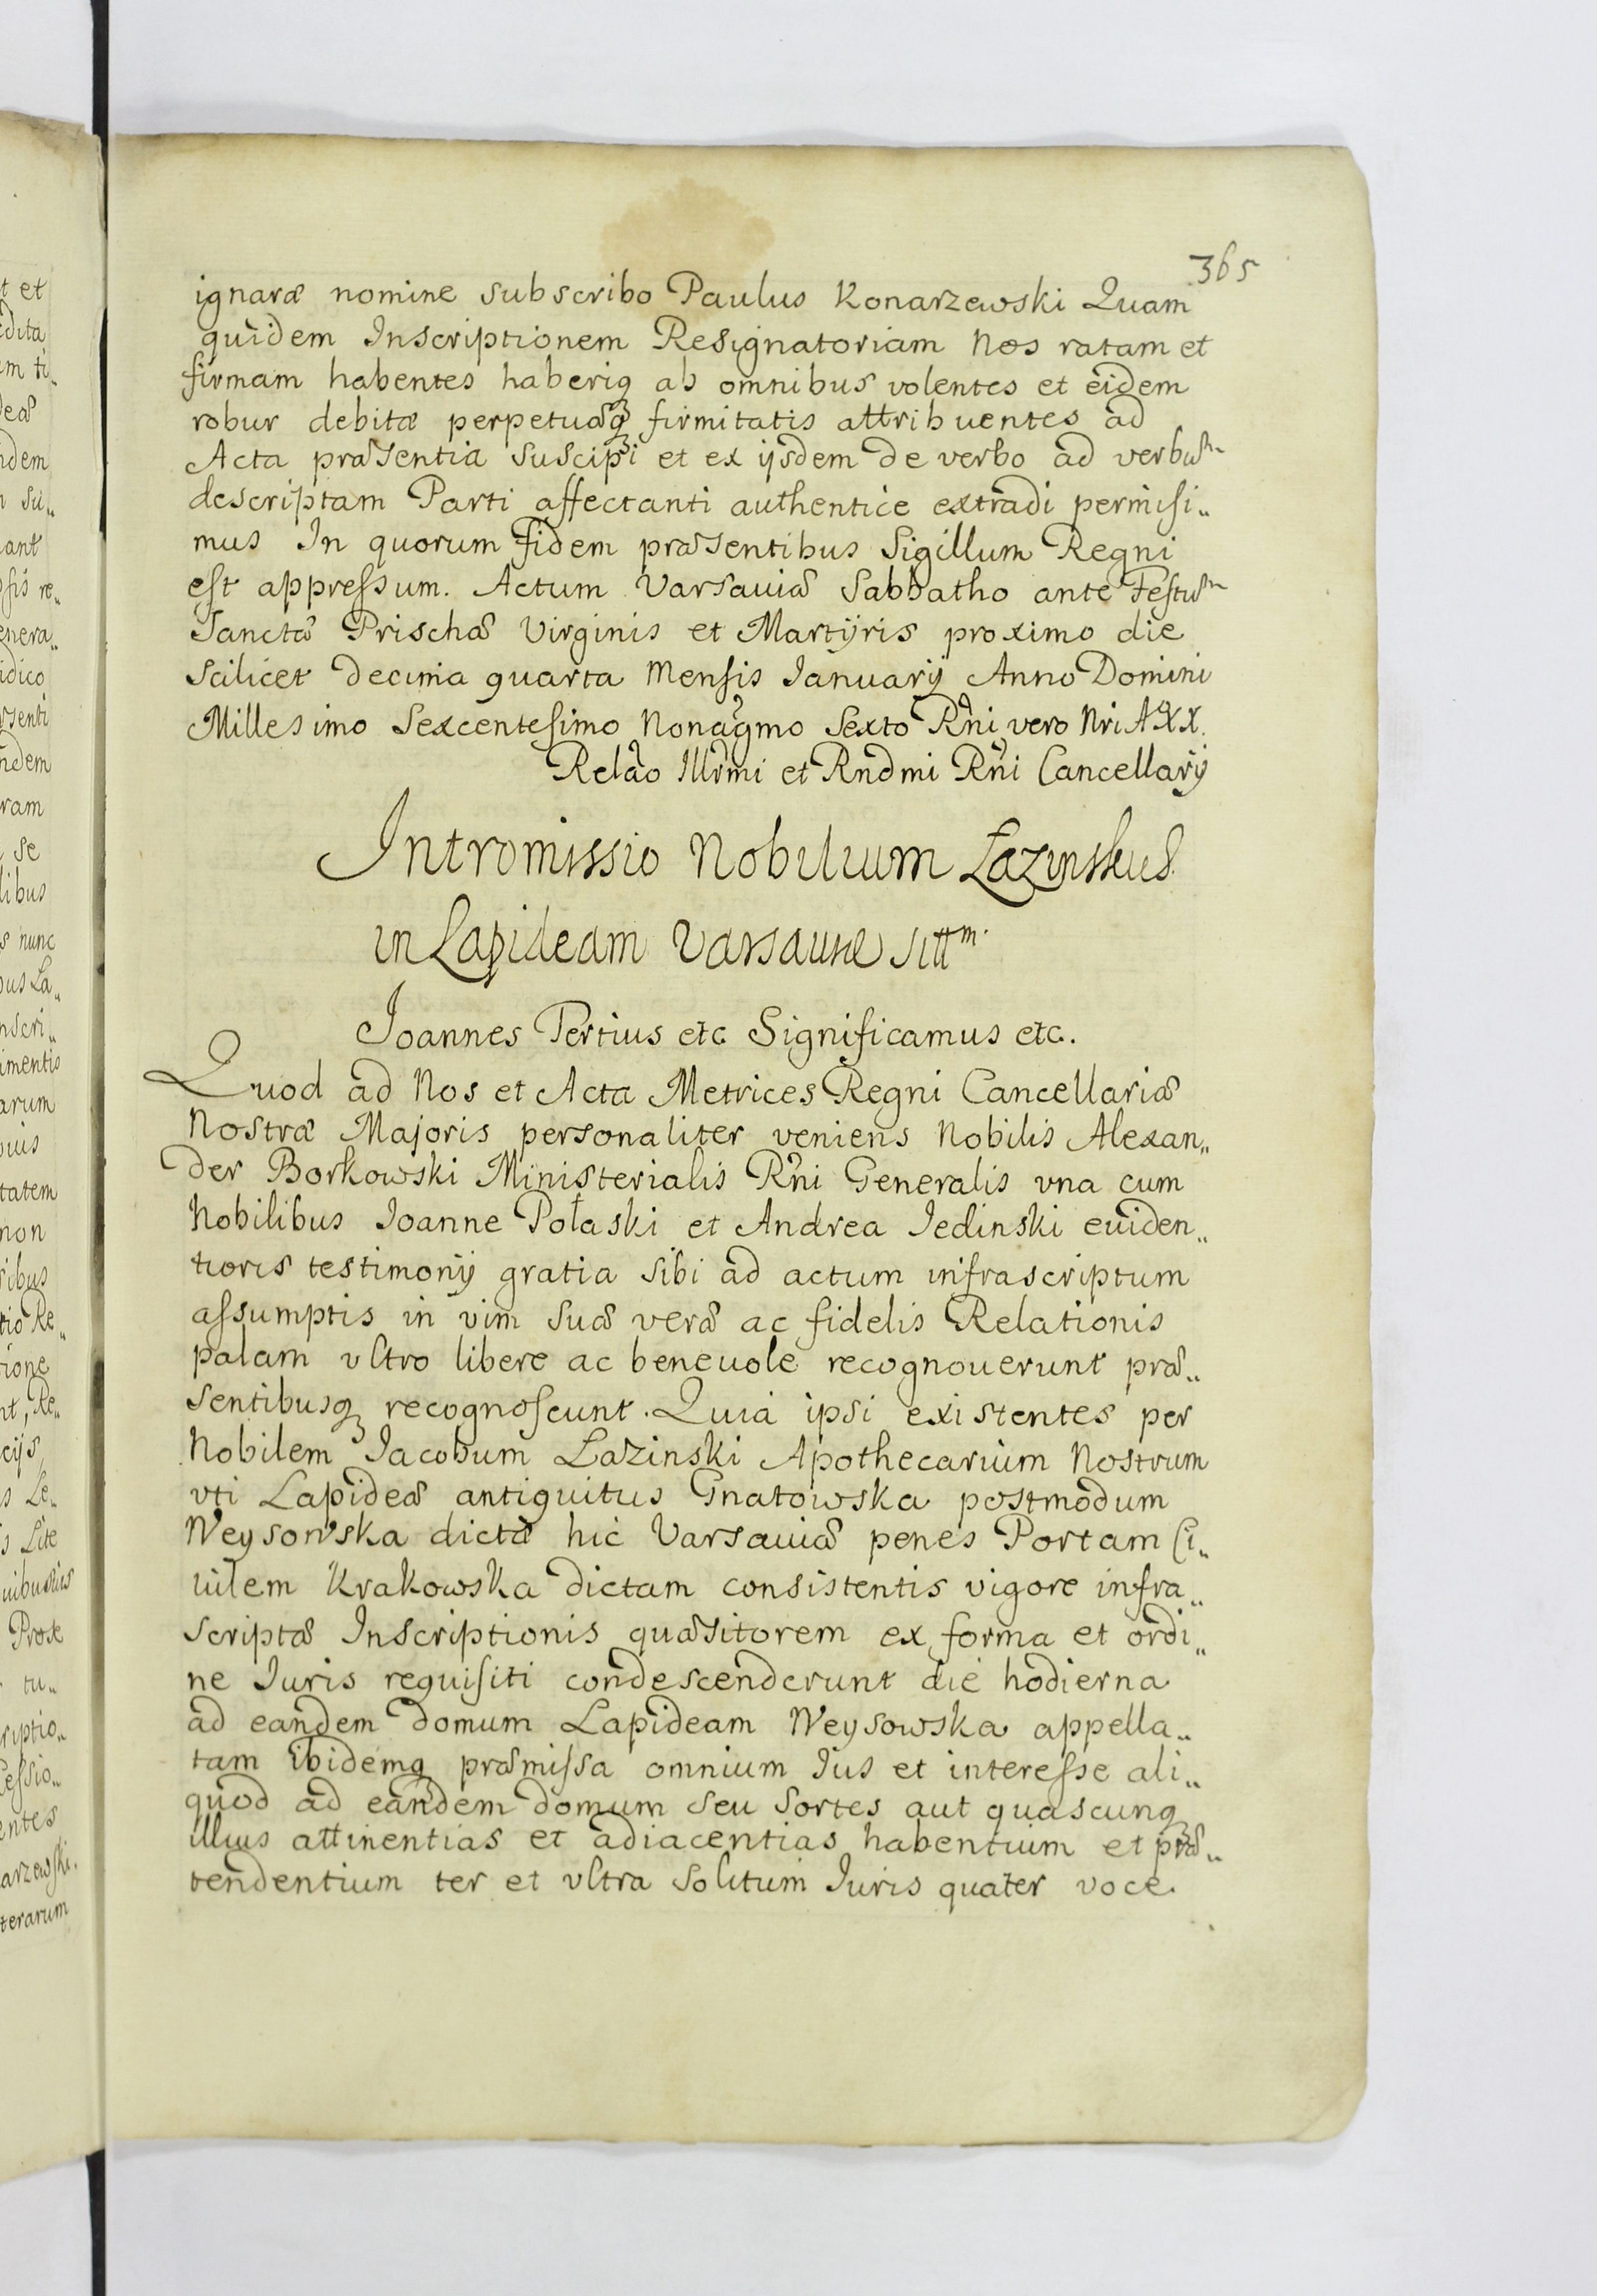 365
ignaræ nomine subscribo Paulus Konarzewski Quam
quidem Inscriptionem Resignatoriam Nos ratam et
firmam habentes haberiq ab omnibus volentes et eidem
robur debitæ perpetuæq firmitatis attribuentes ad
Acta præsentia suscipi et ex ijsdem de verbo ad verbũ
descriptam Parti affectanti authentice extradi permisi„
mus In quorum fidem præsentibus Sigillum Regni
est appressum. Actum Varsaviæ Sabbatho ante Festũ
Sanctæ Prischæ Virginis et Martyris proximo die
scilicet decima quarta Mensis Ianuarij Anno Domini
Millesimo Sexcentesimo Nonagmo Sexto Rni vero Nri AXX.
Relão Illrmi et Rndmi Rni Cancellarij
Intromissio Nobilium Łazinskie
in Lapideam Varsaviæ sittm.
Joannes Tertius etc Significamus etc.
Quod ad Nos et Acta Metrices Regni Cancellariæ
Nostræ Majoris personaliter veniens Nobilis Alexan„
der Borkowski Ministerialis Rni Generalis vna cum
Nobilibus Ioanne Połaski et Andrea Iedinski euiden„
tioris testimonij gratia sibi ad actum infrascriptum
assumptis in vim suæ veræ ac fidelis Relationis
palam vltro libere ac beneuole recognouerunt præ„
sentibusq recognoscunt. Quia ipsi existentes per
Nobilem Iacobum Łazinski Apothecarium Nostrum
vti Lapideæ antiquitus Gnatowska postmodum
Weysowska dictæ hic Varsauiæ penes Portam Ci„
uilem Krakowska dictam consistentis vigore infra„
scriptæ Inscriptionis quæsitorem ex forma et ordi„
ne Iuris requisiti condescenderunt die hodierna
ad eandem domum Lapideam Weysowska appella„
tam ibidemq præmissa omnium Ius et interesse ali„
quod ad eandem domum seu sortes aut quascunq
illius attinentias et adiacentias habentium et præ„
tendentium ter et vltra solitum Iuris quater voce